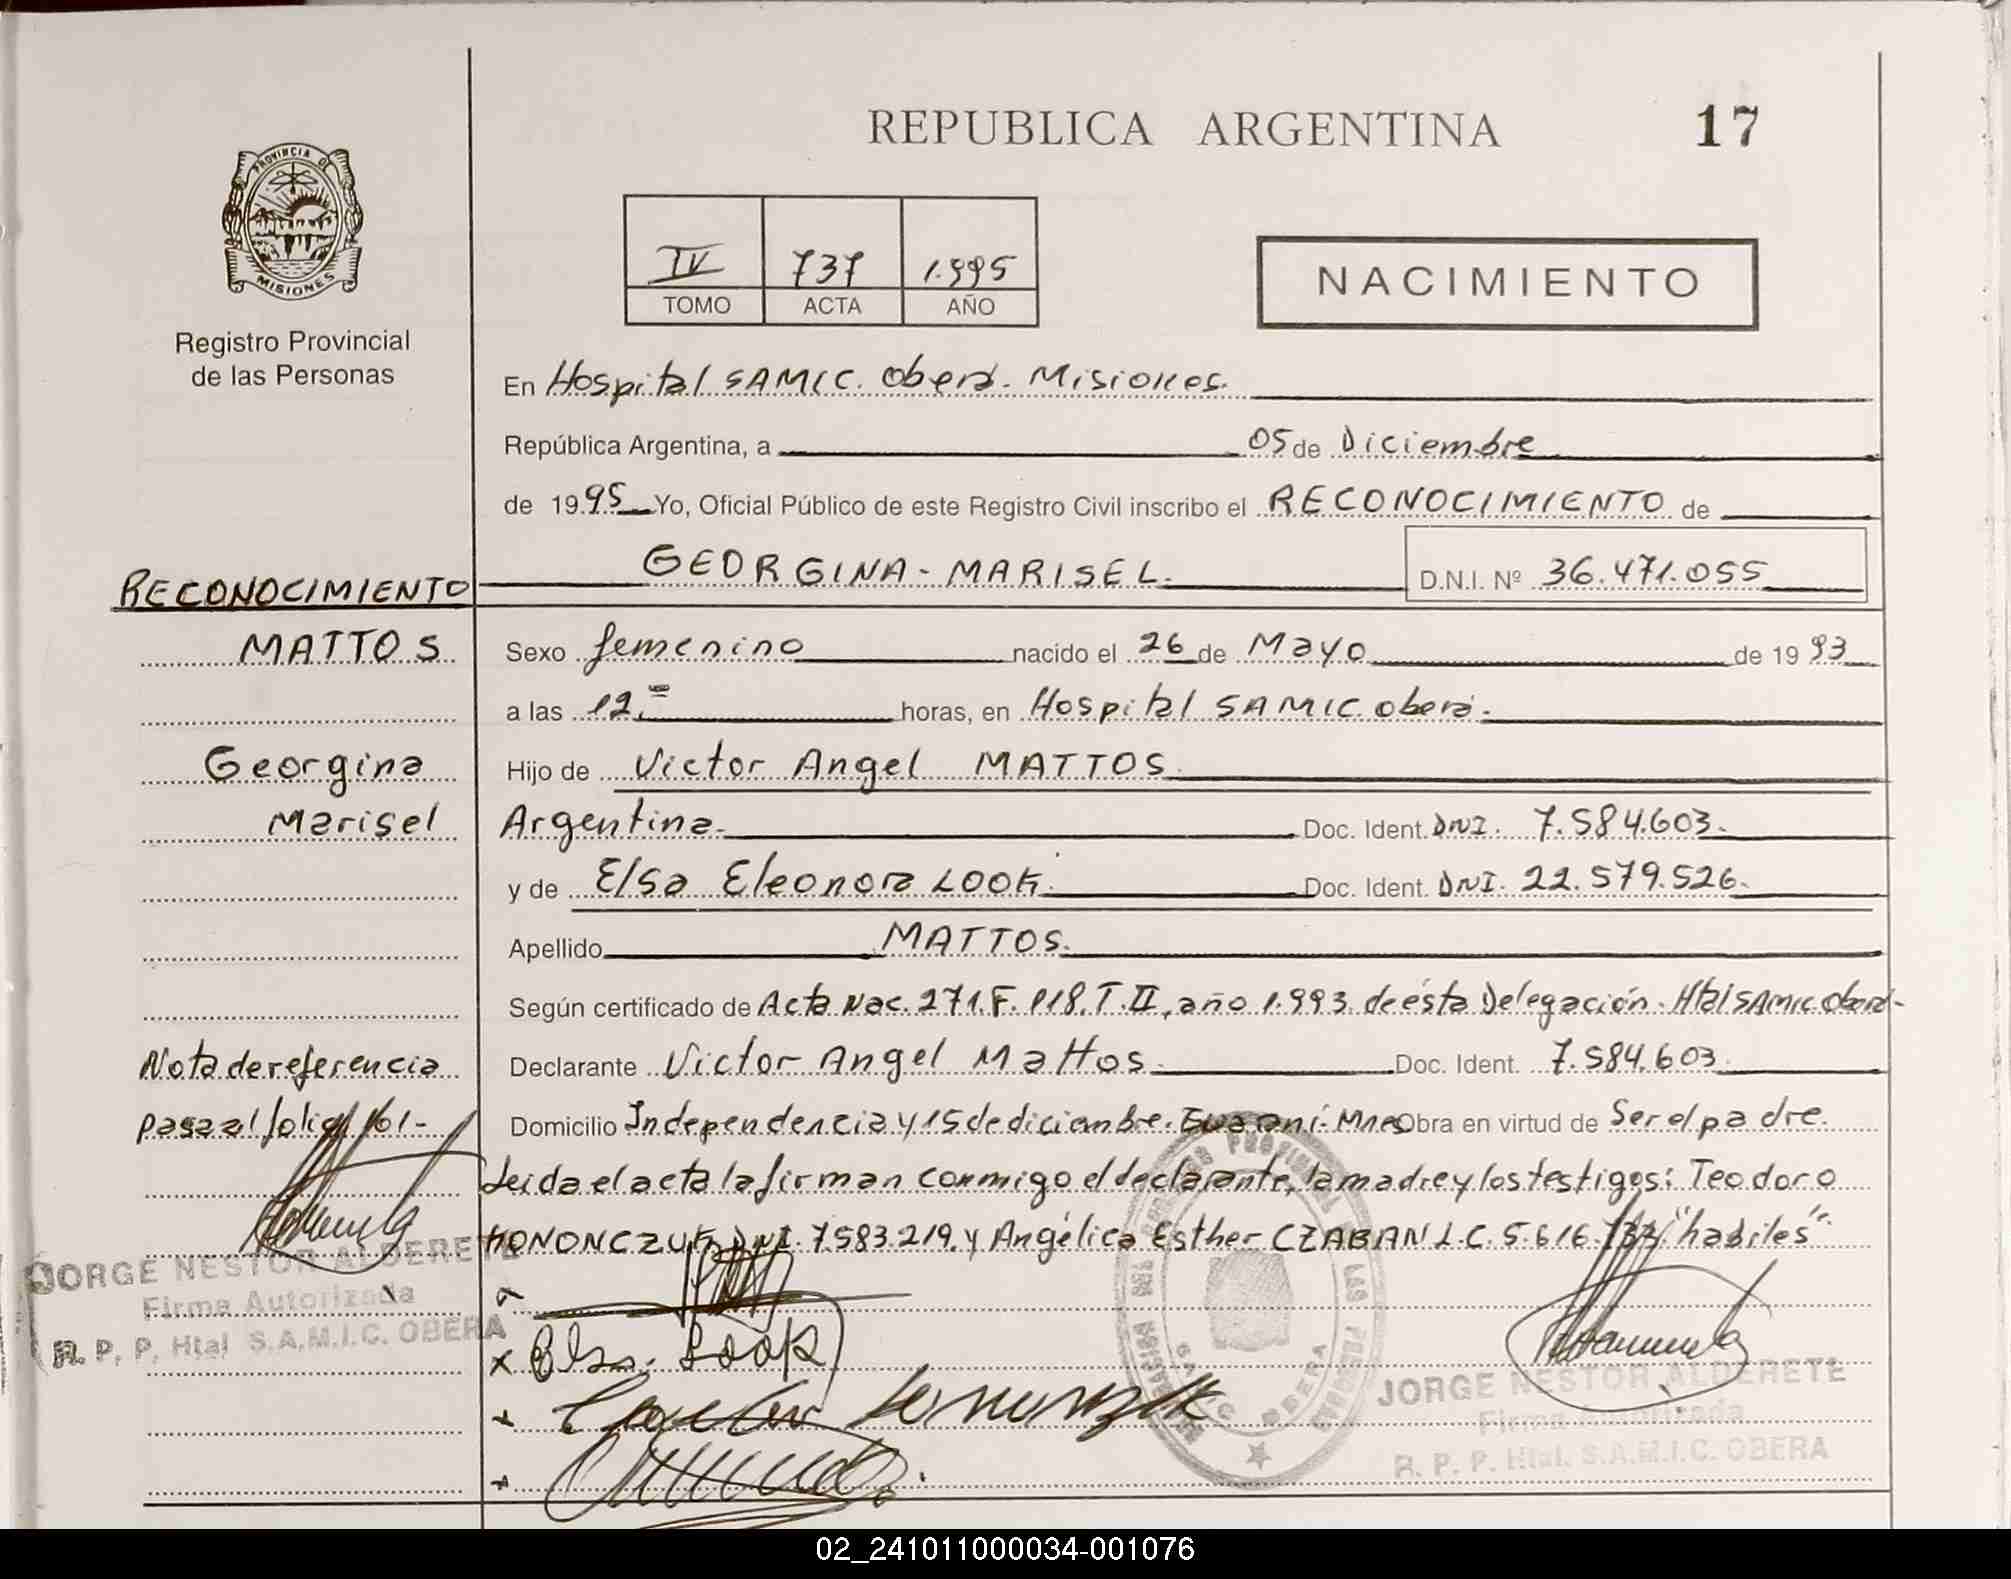 REPUBLICA ARGENTINA
17
PROVINCIA DE
MISIONES
Registro Provincial
de las Personas
IV 737 1.995
TOMO ACTA AÑO
NACIMIENTO
En Hospital SAMIC. Oberá. Misiones.
República Argentina, a 05 de Diciembre
de 1995 Yo, Oficial Público de este Registro Civil inscribo el RECONOCIMIENTO de
GEORGINA-MARISEL. D.N.I. Nº 36.471.055
RECONOCIMIENTO
MATTOS
Georgina
Marisel
Nota de referencia
pasa al folio 161-
JORGE NESTOR ALDERETE
Firma Autorizada
R. P. P. Htal S.A.M.I.C. OBERA
Sexo femenino nacido el 26 de Mayo de 1993
a las 12.= horas, en Hospital SAMIC oberá.
Hijo de Victor Angel MATTOS
Argentina. Doc. Ident. DNI. 7.584.603.
y de Elsa Eleonora LOOK. Doc. Ident. DNI. 22.579.526.
Apellido MATTOS.
Según certificado de Acta Nac. 271.F.118.T.II, año 1.993. de ésta Delegación. Htal SAMIC oberá-
Declarante Victor Angel Mattos. Doc. Ident. 7.584.603
Domicilio Independencia y 15 de diciembre. Mnes Obra en virtud de Ser el padre.
Leida el acta la firman conmigo el declarante, la madre y los testigos: Teodoro
HONONCZUK DNI. 7.583.219. y Angélica Esther CZABAN L.C. 5.616.733 "habiles"
x Elsa Look
JORGE NESTOR ALDERETE
Firma Autorizada
R. P. P. Htal. S.A.M.I.C. OBERA
02_241011000034-001076